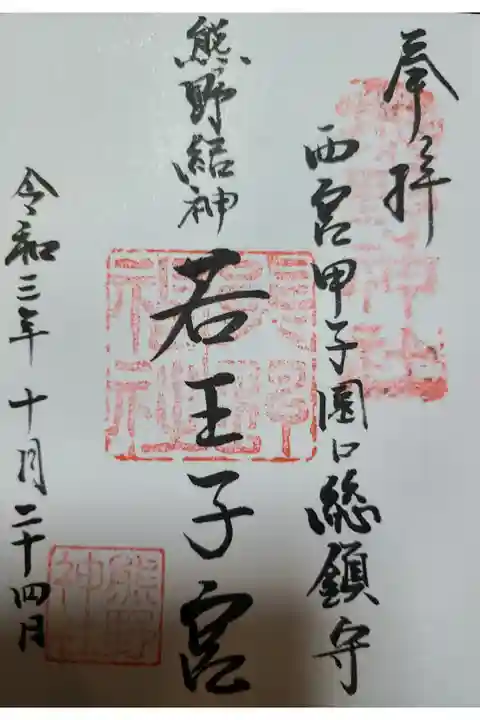 奉拝
西宮甲子園口総鎮守
熊野結神
若王子宮
令和三年十月二十四月
熊野神社